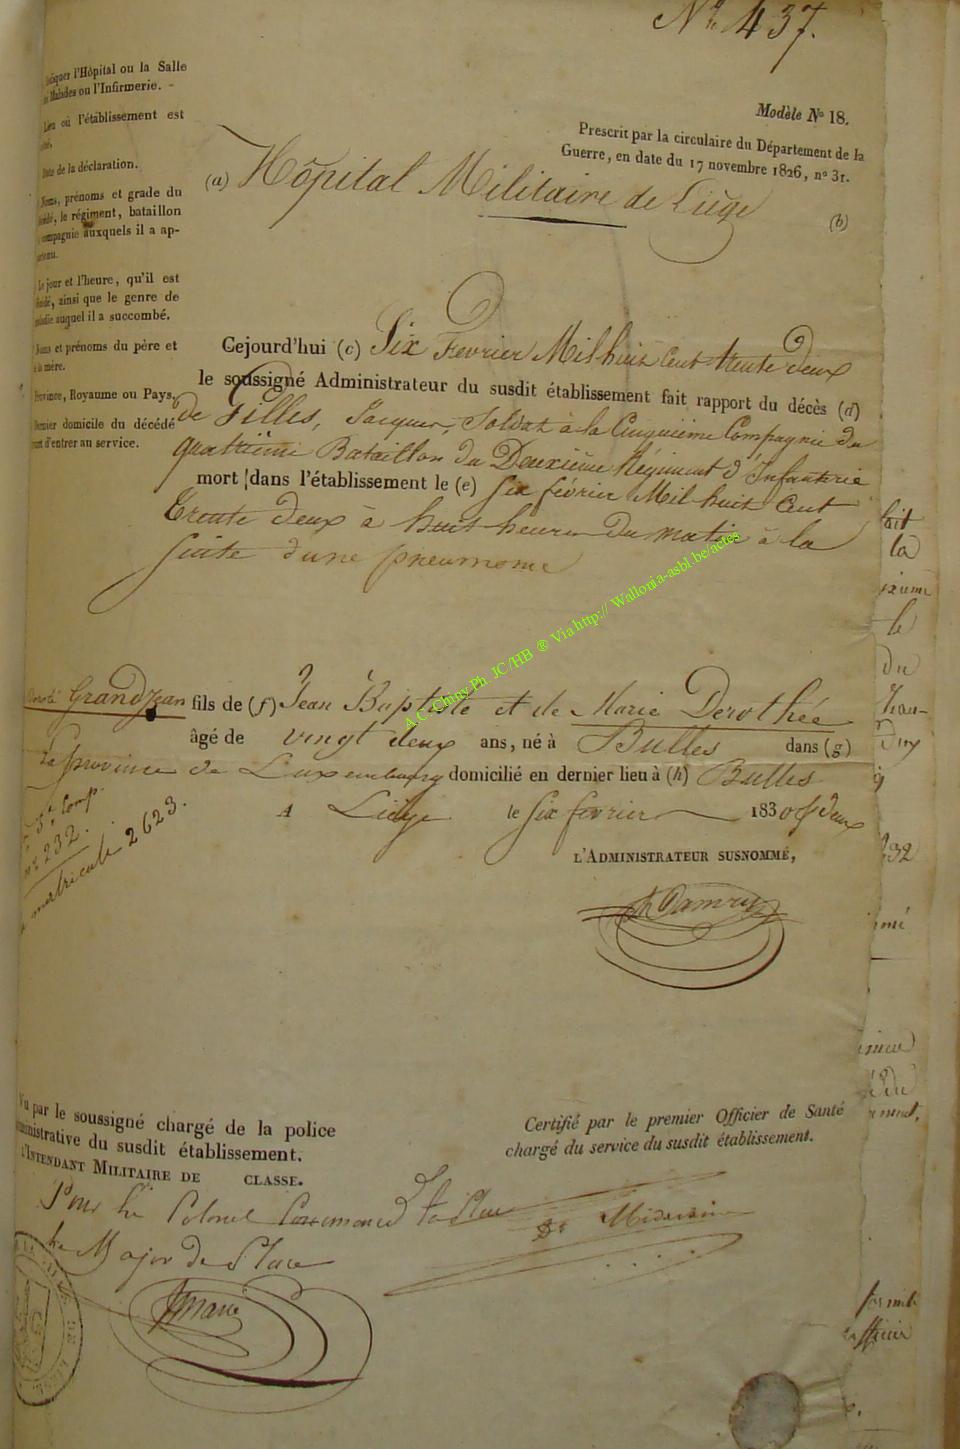 Nº 437.
Modèle Nº 18.
Prescrit par la circulaire du Département de la
Guerre, en date du 17 novembre 1826, nº 31.
l'Hôpital ou la Salle
Malades ou l'Infirmerie. -
Lieu où l'établissement est
Date de la déclaration.
Noms, prénoms et grade du
le régiment, bataillon
compagnie auxquels il a ap-
Le jour et l'heure, qu'il est
ainsi que le genre de
maladie auquel il a succombé.
Noms et prénoms du père et
la mère.
Province, Royaume ou Pays.
Dernier domicile du décédé
d'entrer au service.
(a) Hôpital Militaire de Liège
(b)
Cejourd'hui (c) Six Fevrier Mil huit Cent trente deux
le soussigné Administrateur du susdit établissement fait rapport du décès (d)
de Filles, Jacques, Soldat à la Cinquième Compagnie du
quatrième Bataillon du Deuxième Régiment d'Infanterie
mort dans l'établissement le (e) Six février Mil huit Cent
Trente deux à huit heures du matin à la
suite d'une pneumonie
Grandjean fils de (f) Jean Baptiste et de Marie Dorothée
âgé de vingt deux ans, né à Bulles dans (g)
la province de Luxembourg domicilié en dernier lieu à (h) Bulles
A Liège le six février 1830 deux
5e Comp.
nº 232.
matricule 2623.
L'ADMINISTRATEUR SUSNOMMÉ,
A.C. Chiny Ph JC/HB ® Via http:// Wallonia-asbl.be/actes
Vu par le soussigné chargé de la police
administrative du susdit établissement.
L'INTENDANT MILITAIRE DE CLASSE.
Pour le Colonel Commandt la Place
Le Major de Place
Certifié par le premier Officier de Santé
chargé du service du susdit établissement.
Médecin